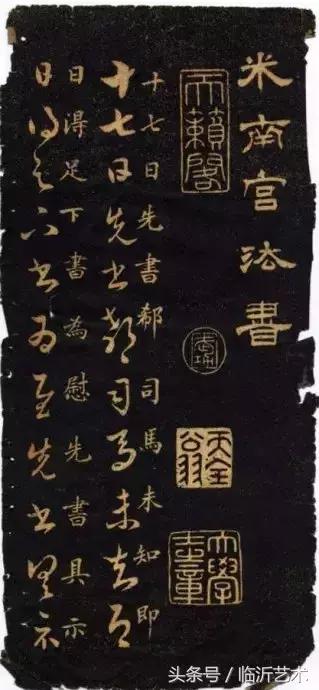 米南宫法書
天籟閣
天全翁
大學士章
十七日先書郗司馬未知即
十七日先書郗司馬未去即
日得足下書為慰先書具示
日得足下書為慰先書具示
头条号/临沂艺术